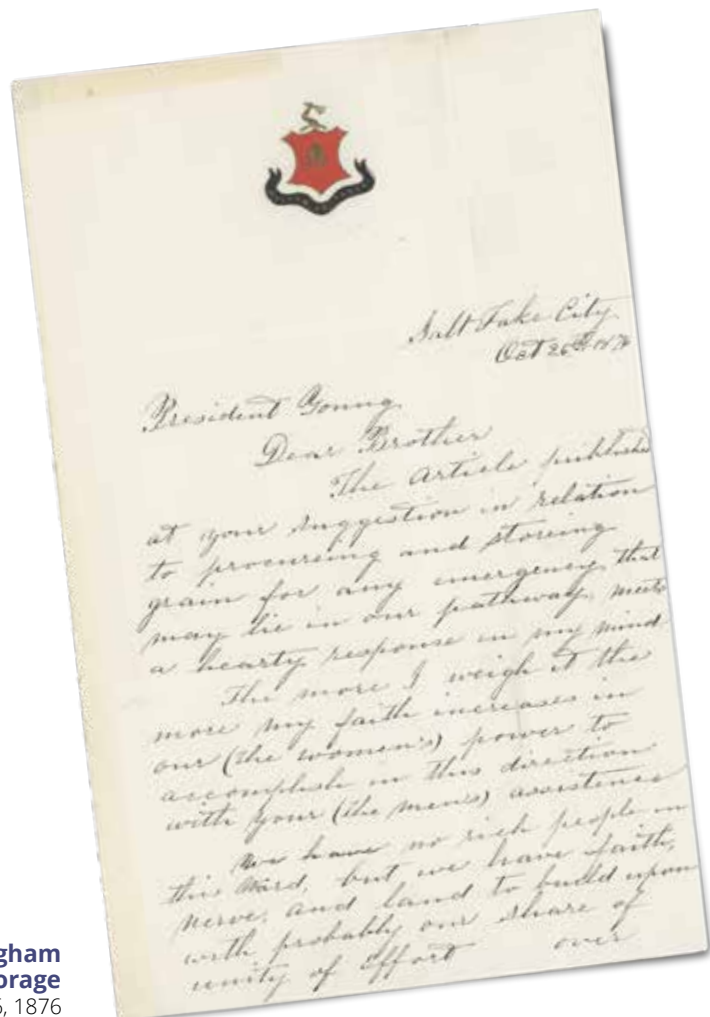 Salt Lake City
Oct 26th 1876
President Young
Dear Brother
The Article published
at your suggestion in relation
to procureing and storeing
grain for any emergency that
may lie in our pathway, meets
a hearty response in my mind
The more I weigh it the
more my faith increases in
our (the women's) power to
accomplish in this direction
with your (the men's) assistence
We have no rich people in
this Ward, but we have faith,
nerve, and land to build upon
with probably our share of
unity of effort over
gham
orage
, 1876